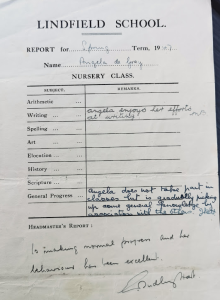 LINDFIELD SCHOOL.
REPORT for Spring Term, 19
Name Angela de
NURSERY CLASS.
SUBJECT. REMARKS.
Arithmetic ...
Writing ... Angela enjoys her efforts
at writing!
Spelling ...
Art ...
Elocution ...
History ...
Scripture ...
General Progress ... Angela does not take part in
classes but is gradually picking
up some general knowledge by
association with the others.
HEADMASTER'S REPORT:
Is making normal progress and her
behaviour has been excellent.